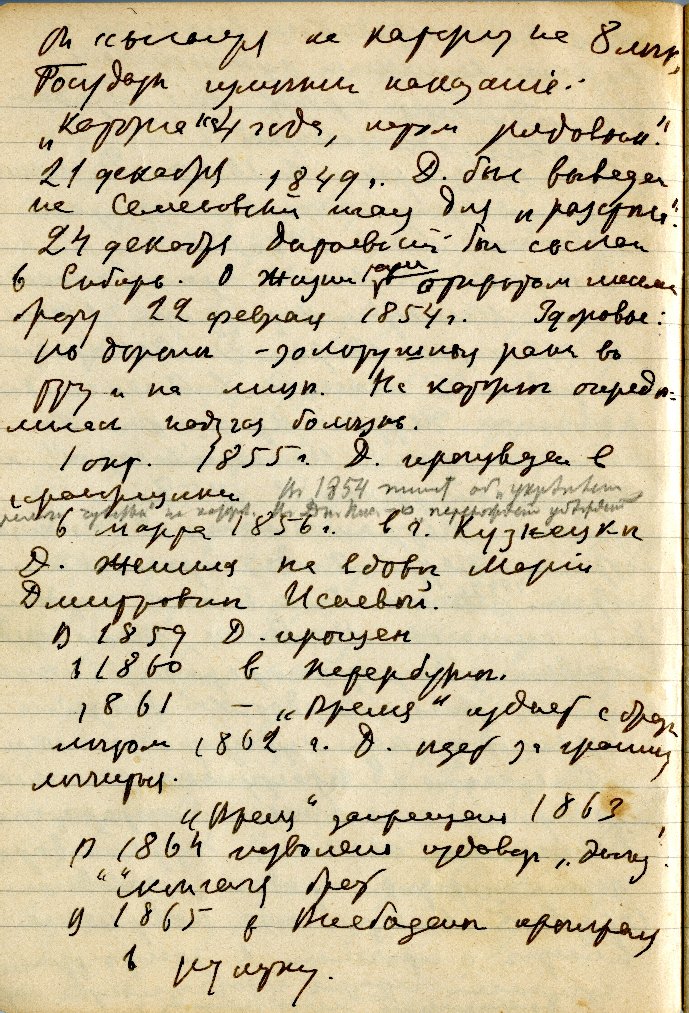 ссылался на каторгу на 8 лет,
Государь изменил наказанiе:
„Каторга на 4 года, потом рядовым."
21 декабря 1849 г. Д. был выведен
на Семеновский плац для „расстрела".
24 декабря Достоевский был сослан
в Сибирь. О жизни там в открытом письме
брату 22 февраля 1854 г. Здоровье:
по дороге – золотушная рана во
рту и на лице. На каторге опреде-
лилась падучая болезнь.
1 окт. 1855 г. Д. произведен в
прапорщики В 1854 пишет об „
6 марта 1856 г. в г. Кузнецке
Д. женился на вдове Марии
Дмитровне Исаевой.
В 1859 Д. прощен
в 1860 в Петербурге.
1861 – „Время" издает с братом
летом 1862 г. Д. едет за границу
лечиться.
„Время" запрещено 1863,
В 1864 изволено издавать „Эпоху".
скончался брат
В 1865 в Висбадене проиграл
в рулетку.